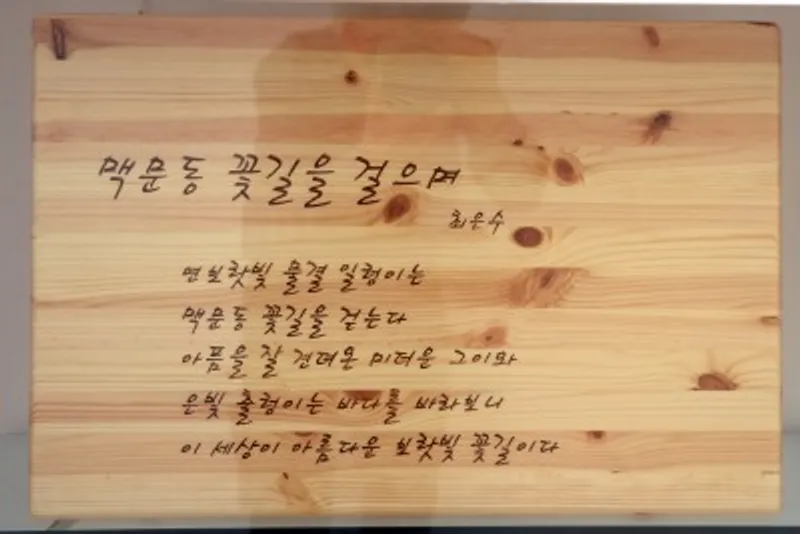 맥문동 꽃길을 걸으며
최은수
연보랏빛 물결 일렁이는
맥문동 꽃길을 걷는다
아픔을 잘 견뎌온 미더운 그이와
은빛 출렁이는 바다를 바라보니
이 세상이 아름다운 보랏빛 꽃길이다